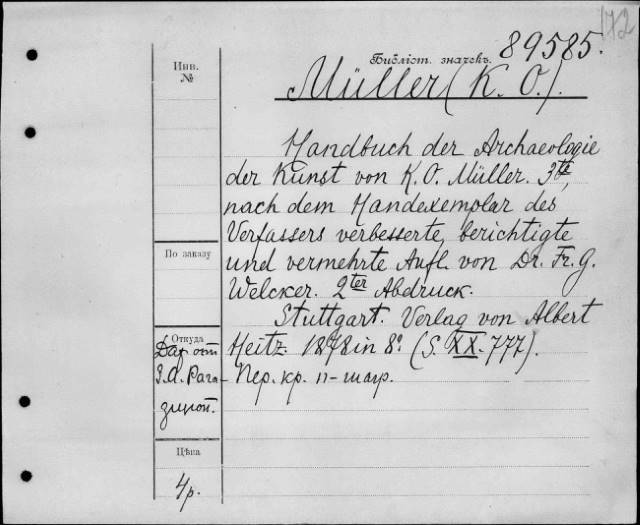 172
Библіот. значекъ. 89585.
Инв.
№
Müller (K. O.).
Handbuch der Archaeologie
der Kunst von K. O. Müller. 3te,
nach dem Handexemplar des
Verfassers verbesserte, berichtigte
По заказу
und vermehrte Aufl. von Dr. Fr. G.
Welcker. 2ter Abdruck.
Stuttgart. Verlag von Albert
Откуда
Даръ отъ Heitz. 1878 in 8º (S. XX. 777).
З. А. Рага- Пер. кр. п-шагр.
зиной.
Цѣна
4р.